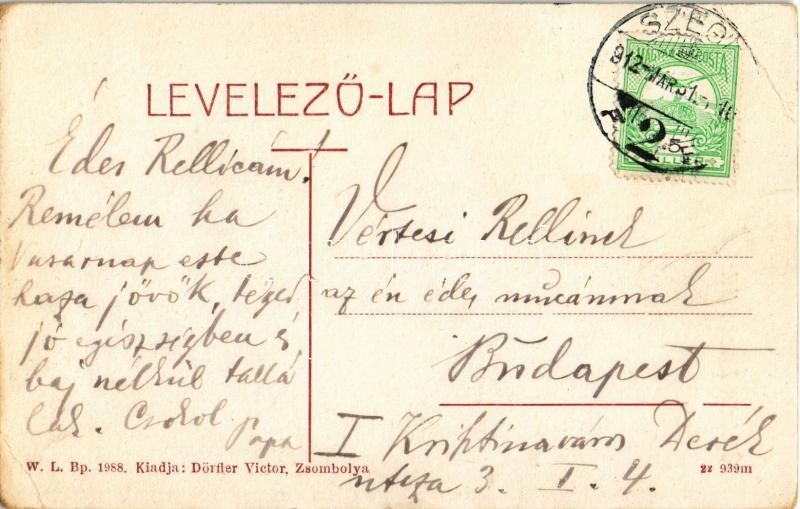 LEVELEZŐ-LAP
Édes Rellicám!
Remélem ha
Vasárnap este
haza jövök, téged
jó egészségben és
baj nélkül talál
lak. Csókol
Papa
Vértesi Rellinek
az én édes mucánnak
Budapest
I Krisztinaváros Derék
utcza 3. I. 4.
SZEG
912 MÁR 31
MAGYAR POSTA
5
FILLÉR
W. L. Bp. 1988. Kiadja: Dörfler Victor, Zsombolya
2z 939m